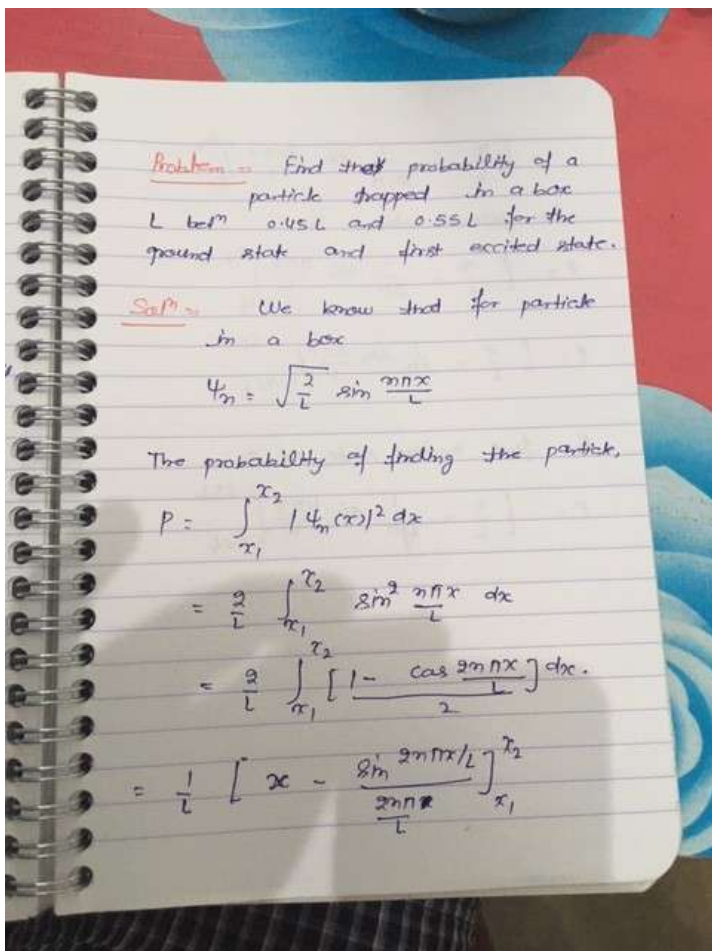 Problem = Find that probability of a
particle trapped in a box
L betⁿ 0.45L and 0.55L for the
ground state and first excited state.
Solⁿ = We know that for particle
in a box
ψₙ = √(2/L) sin nπx/L
The probability of finding the particle,
P = ∫ₓ₁ˣ² |ψₙ(x)|² dx
= 2/L ∫ₓ₁ˣ² sin² nπx/L dx
= 2/L ∫ₓ₁ˣ² [1 - cos 2nπx/L]/2 dx.
= 1/L [x - (sin 2nπx/L)/(2nπ/L)]ₓ₁ˣ²